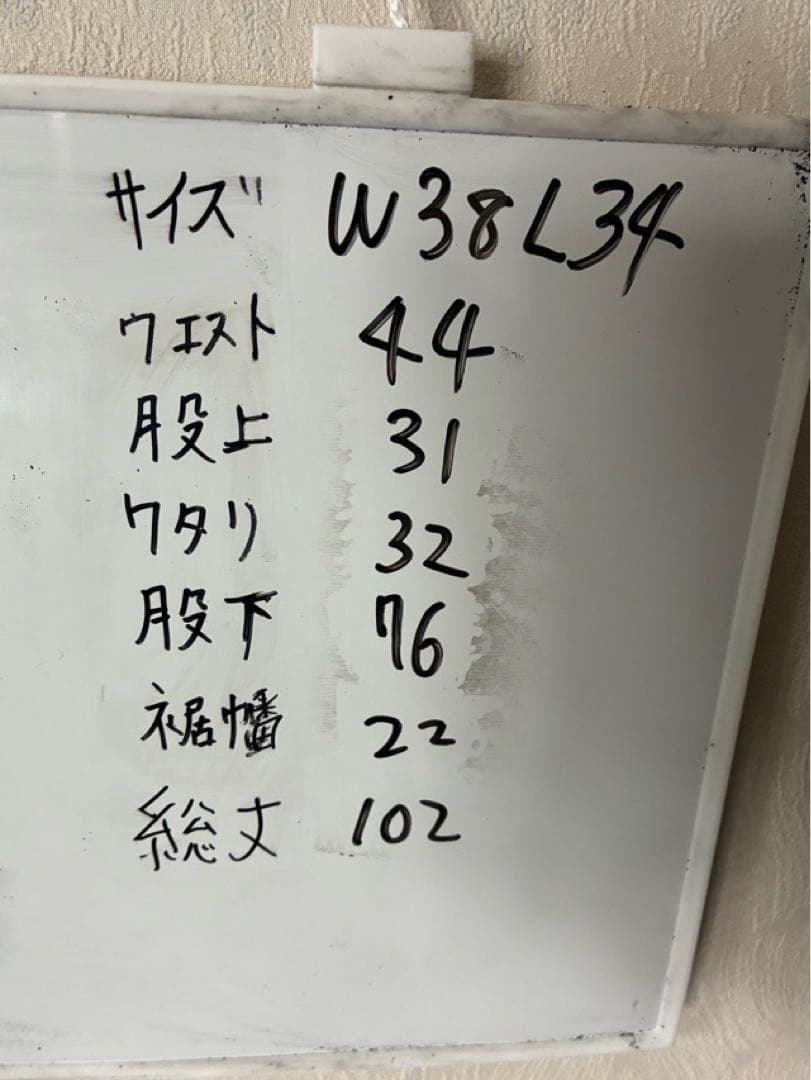 サイズ W38L34
ウエスト 44
股上 31
ワタリ 32
股下 76
裾幡 22
総丈 102